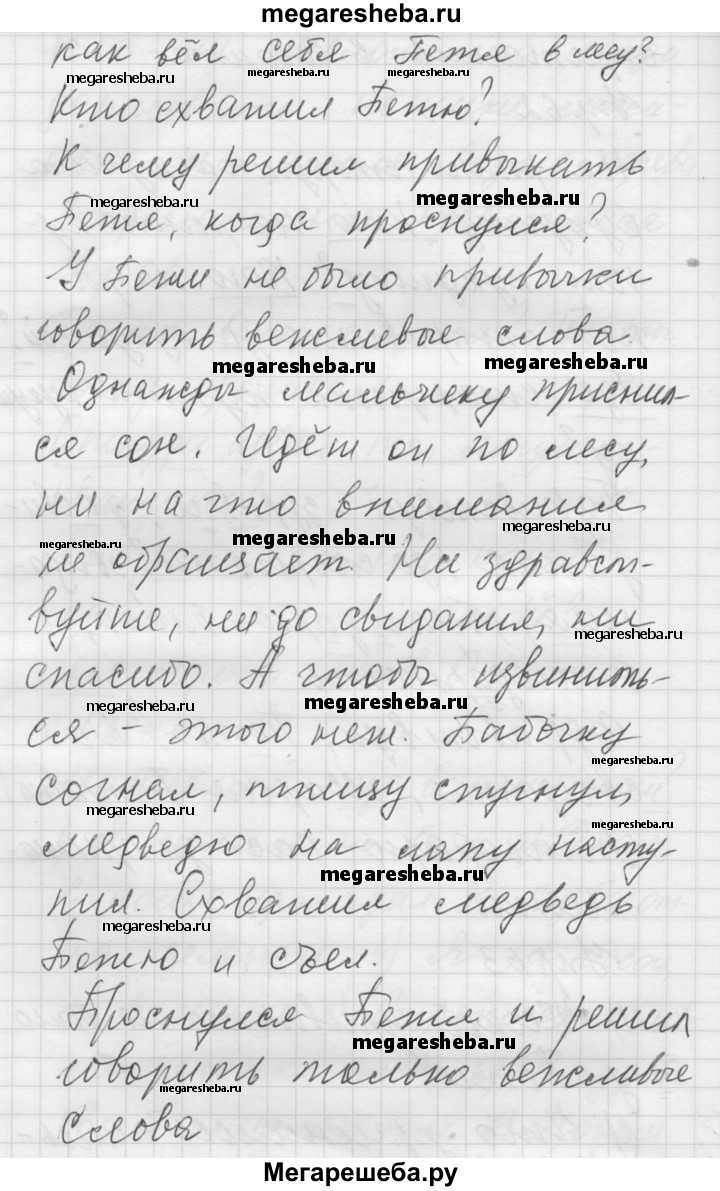 megaresheba.ru
как вёл себя Петя в лесу?
megaresheba.ru megaresheba.ru megaresheba.ru
Кто схватил Петю?
К чему решил привыкать
megaresheba.ru megaresheba.ru
Петя, когда проснулся?
У Пети не было привычки
говорить вежливые слова.
megaresheba.ru megaresheba.ru
Однажды мальчику приснил-
ся сон. Идёт он по лесу,
ни на что внимания
megaresheba.ru
megaresheba.ru megaresheba.ru
не обращает. Ни здравст-
вуйте, ни до свидания, ни
megaresheba.ru
спасибо. А чтобы извинить-
megaresheba.ru megaresheba.ru
ся – этого нет. Бабочку
megaresheba.ru
согнал, птицу спугнул,
megaresheba.ru megaresheba.ru
медведю на лапу насту-
megaresheba.ru
пил. Схватил медведь
megaresheba.ru
Петю и съел.
Проснулся Петя и решил
megaresheba.ru
говорить только вежливые
megaresheba.ru
слова
Мегарешеба.ру